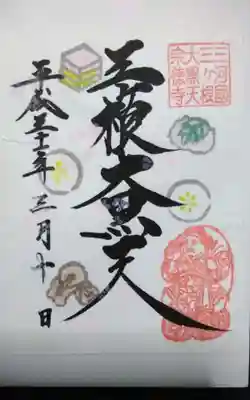 三河国
三ヶ根
大黒天
宗徳寺
三根大黒天
平成三十年三月十日